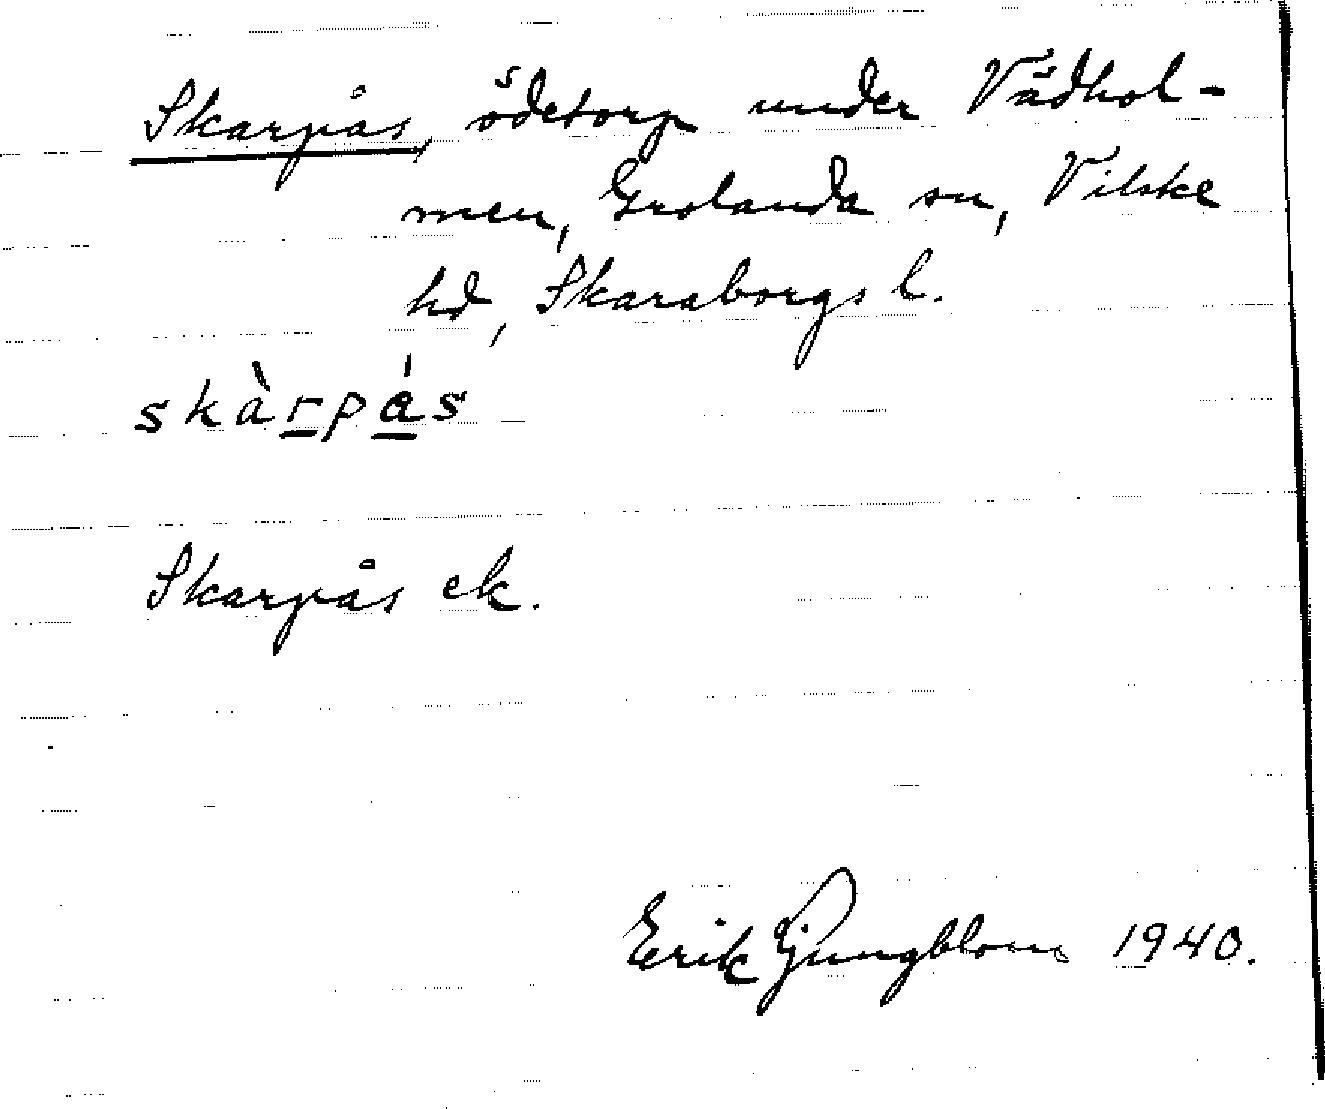 Skarpås, ödetorp under Vädhol-
men, Grolanda sn, Vilske
hd, Skaraborgs l.
skàrpás
Skarpås ek.
Erik Ljungblom 1940.